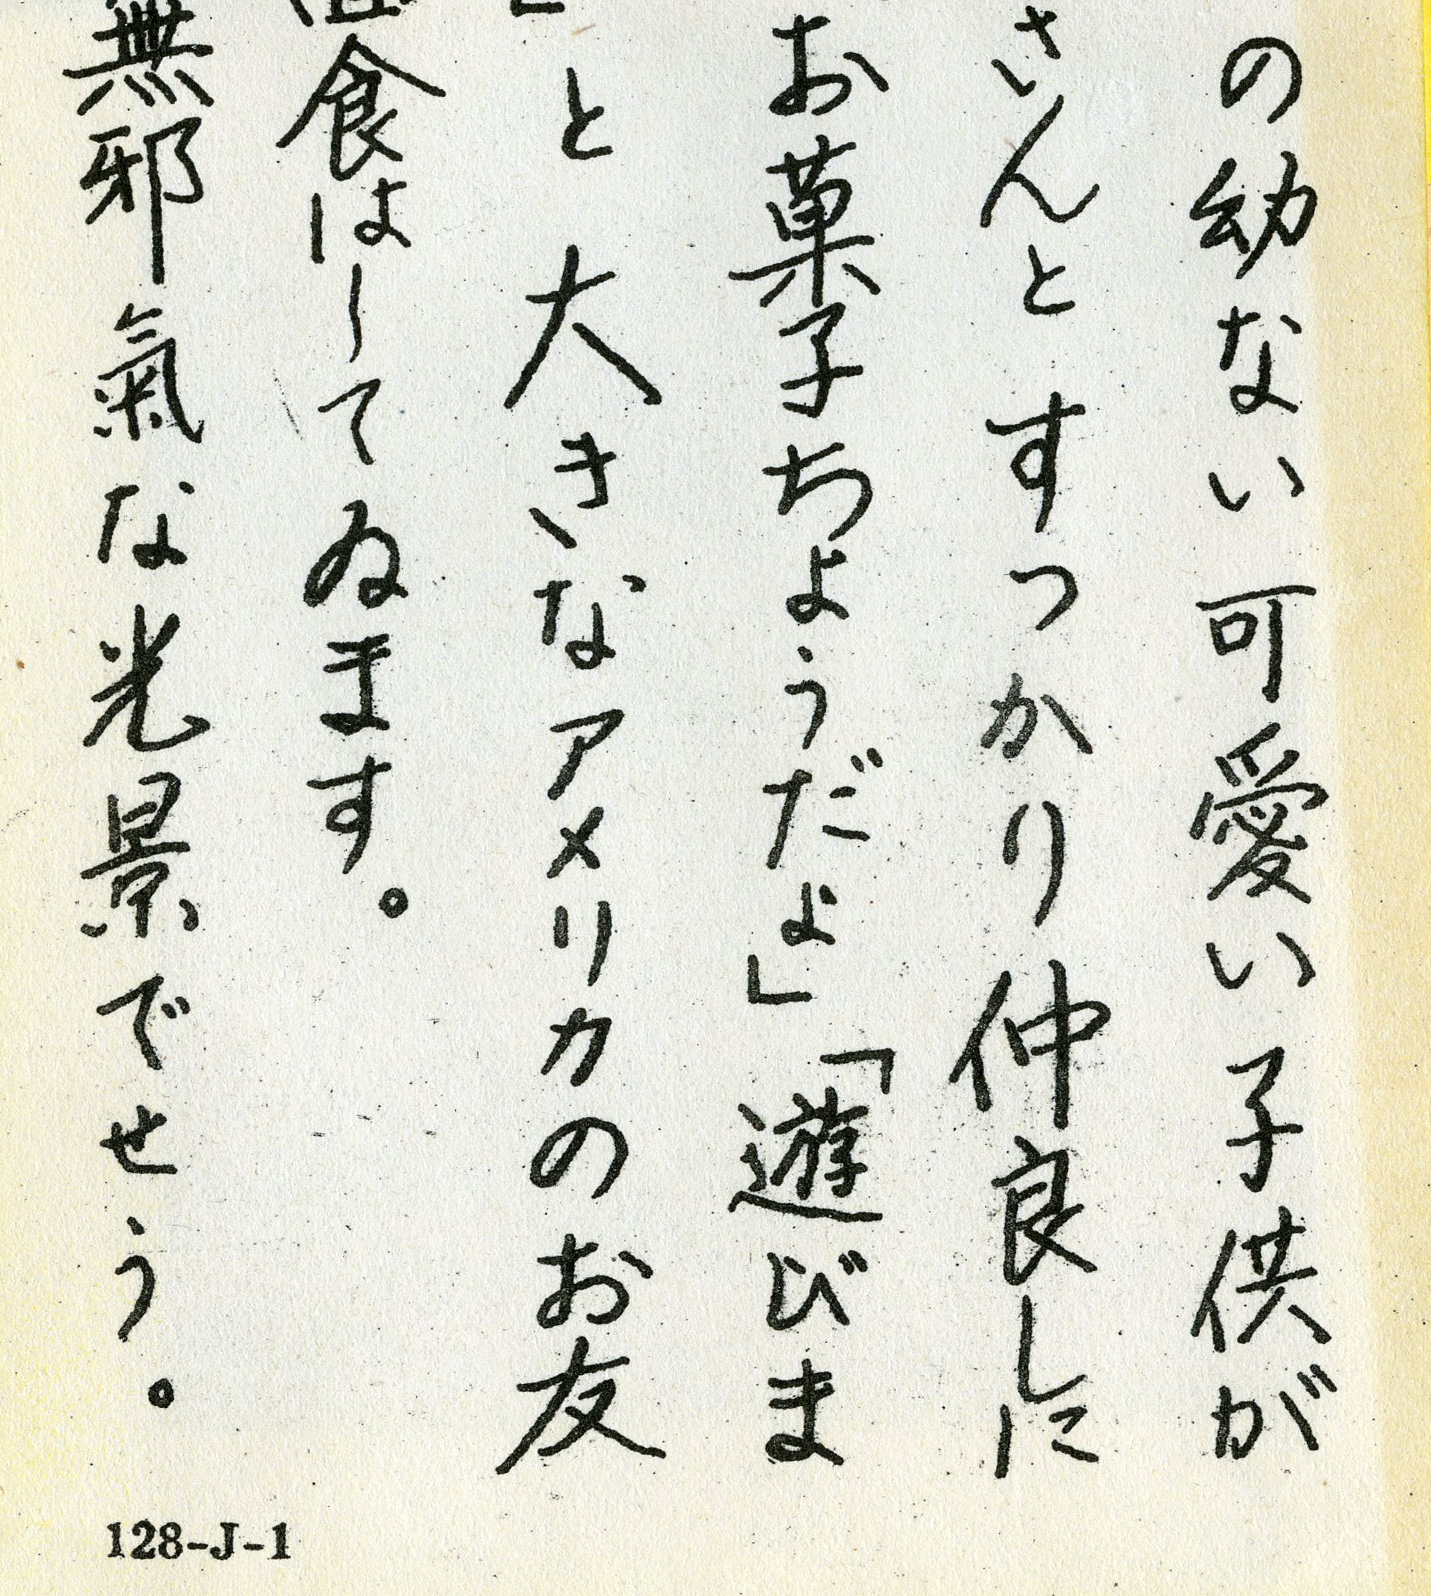 の幼ない可愛い子供が
さんとすつかり仲良しに
お菓子ちようだよ」「遊びま
と大きなアメリカのお友
食はしてゐます。
無邪氣な光景でせう。
128-J-1